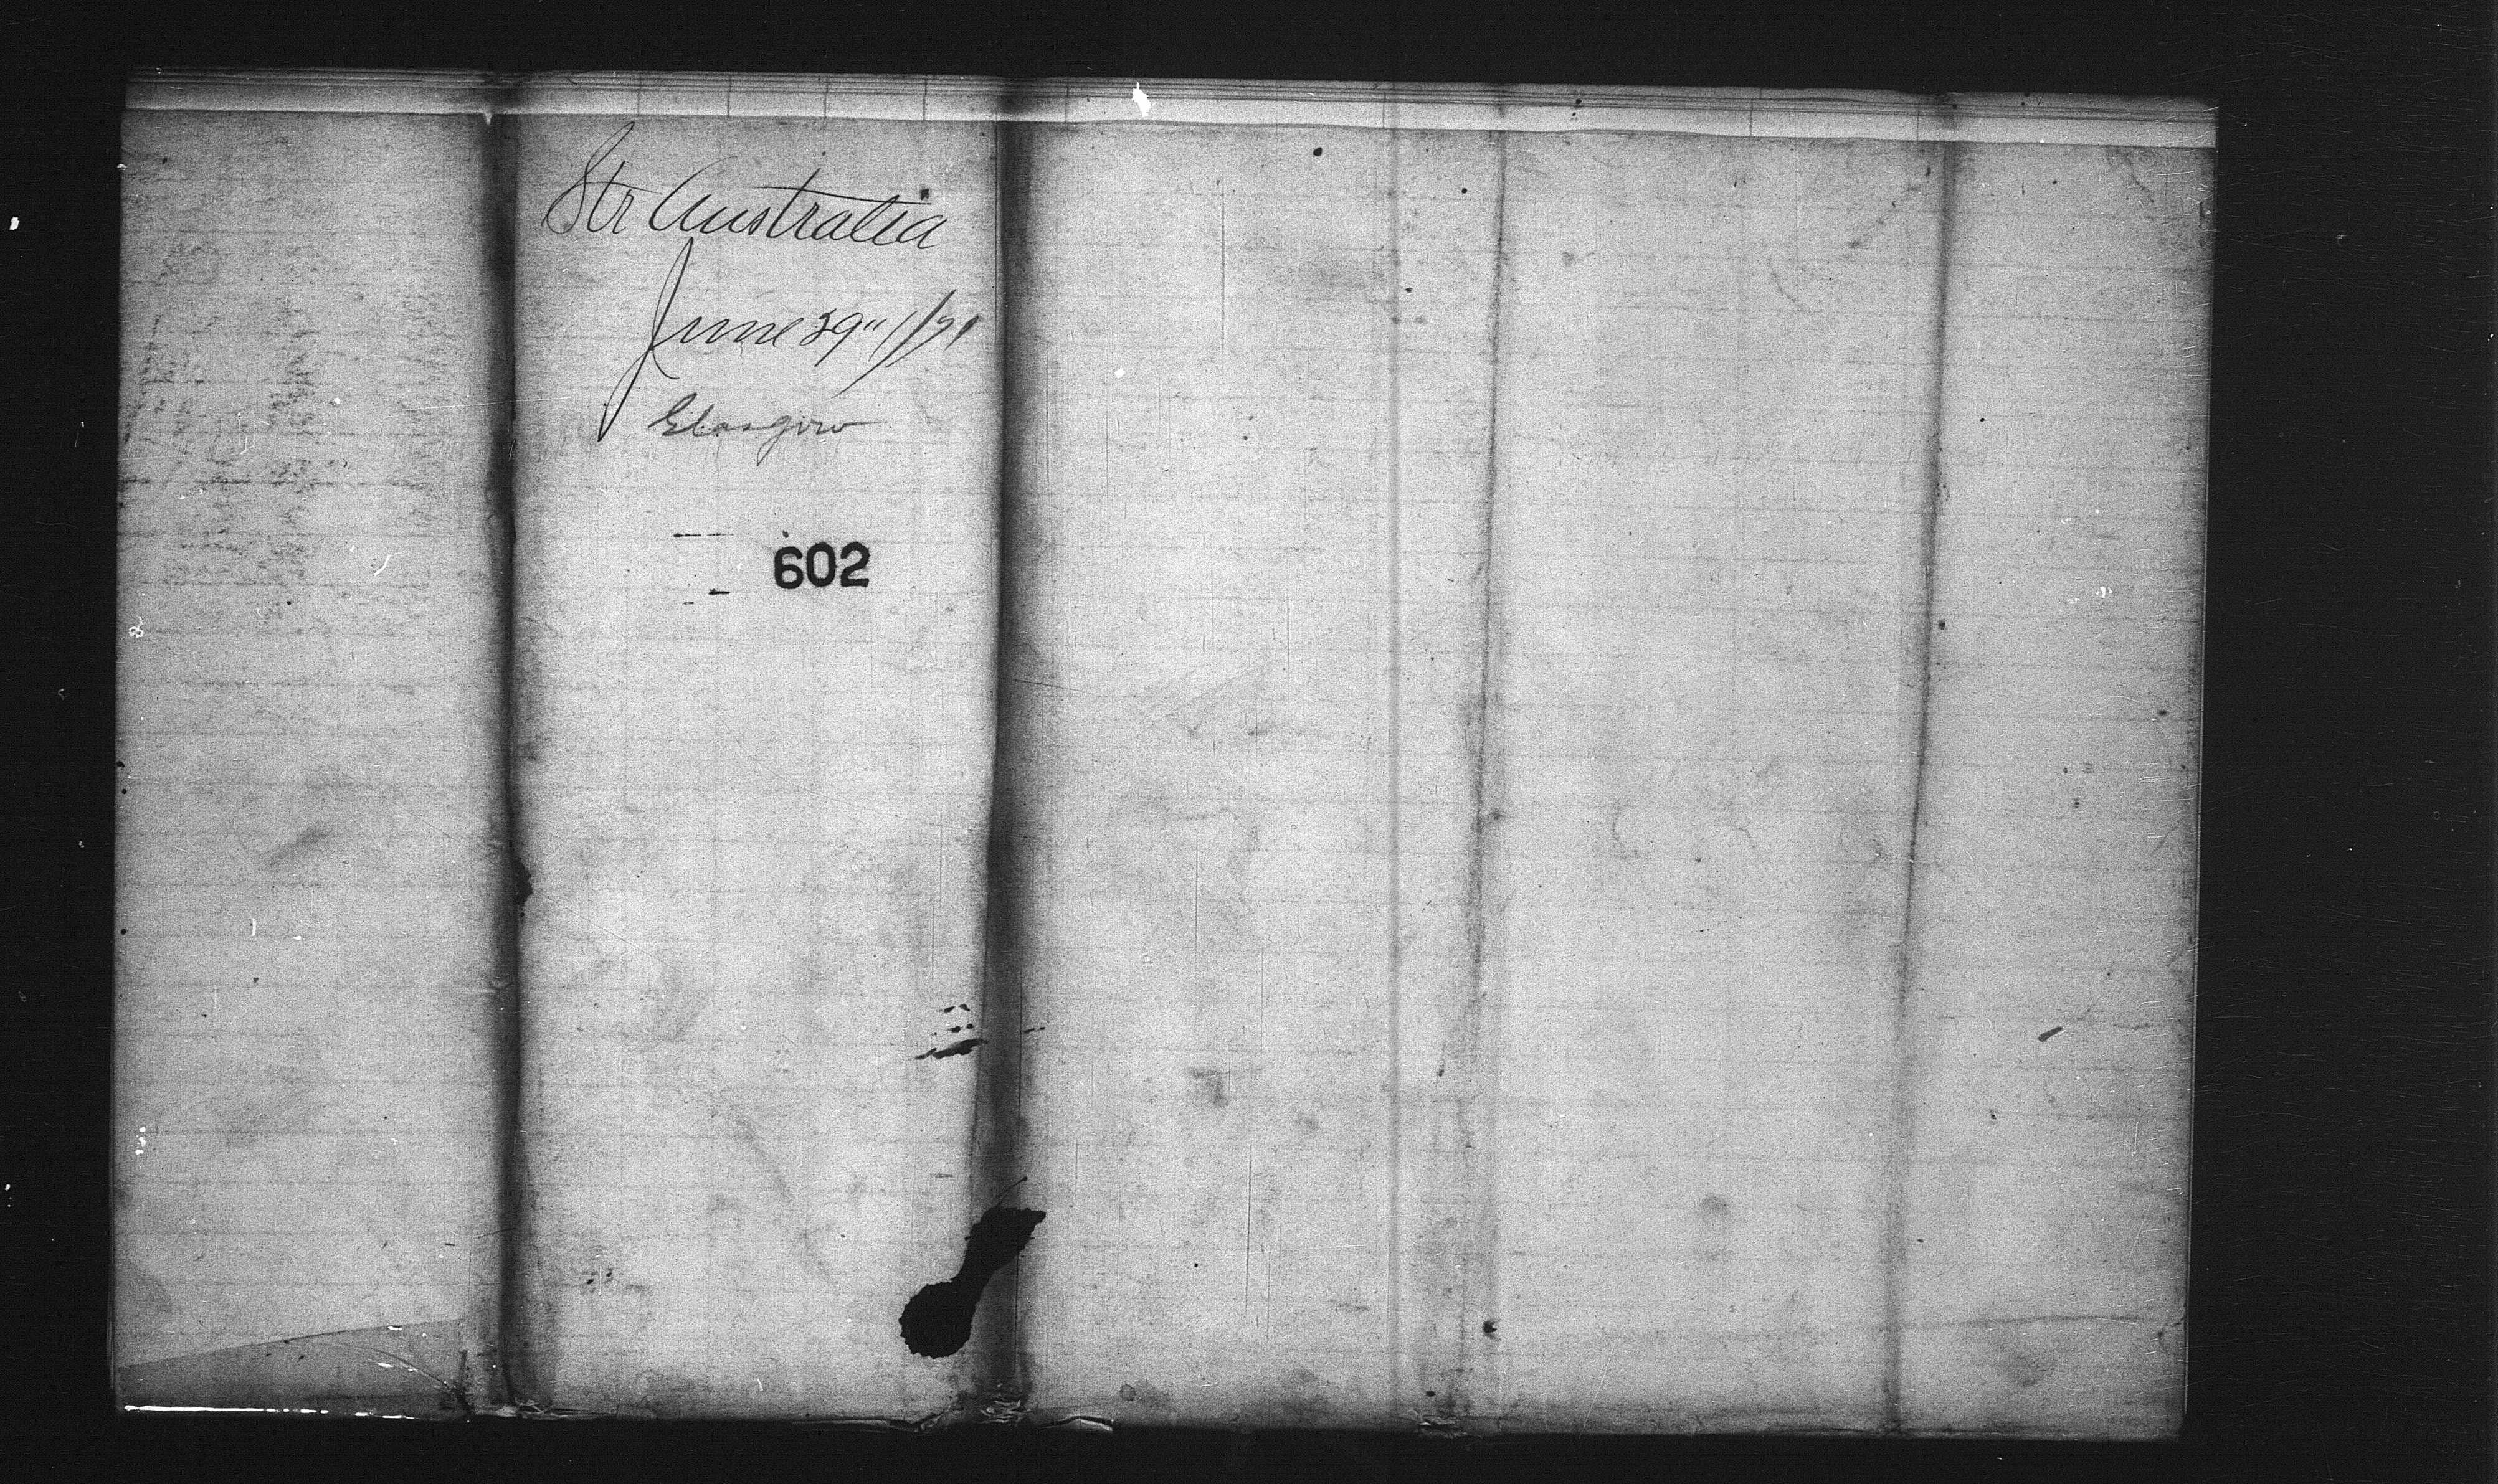 Str Australia
June 29" 1/71
Glasgow
602